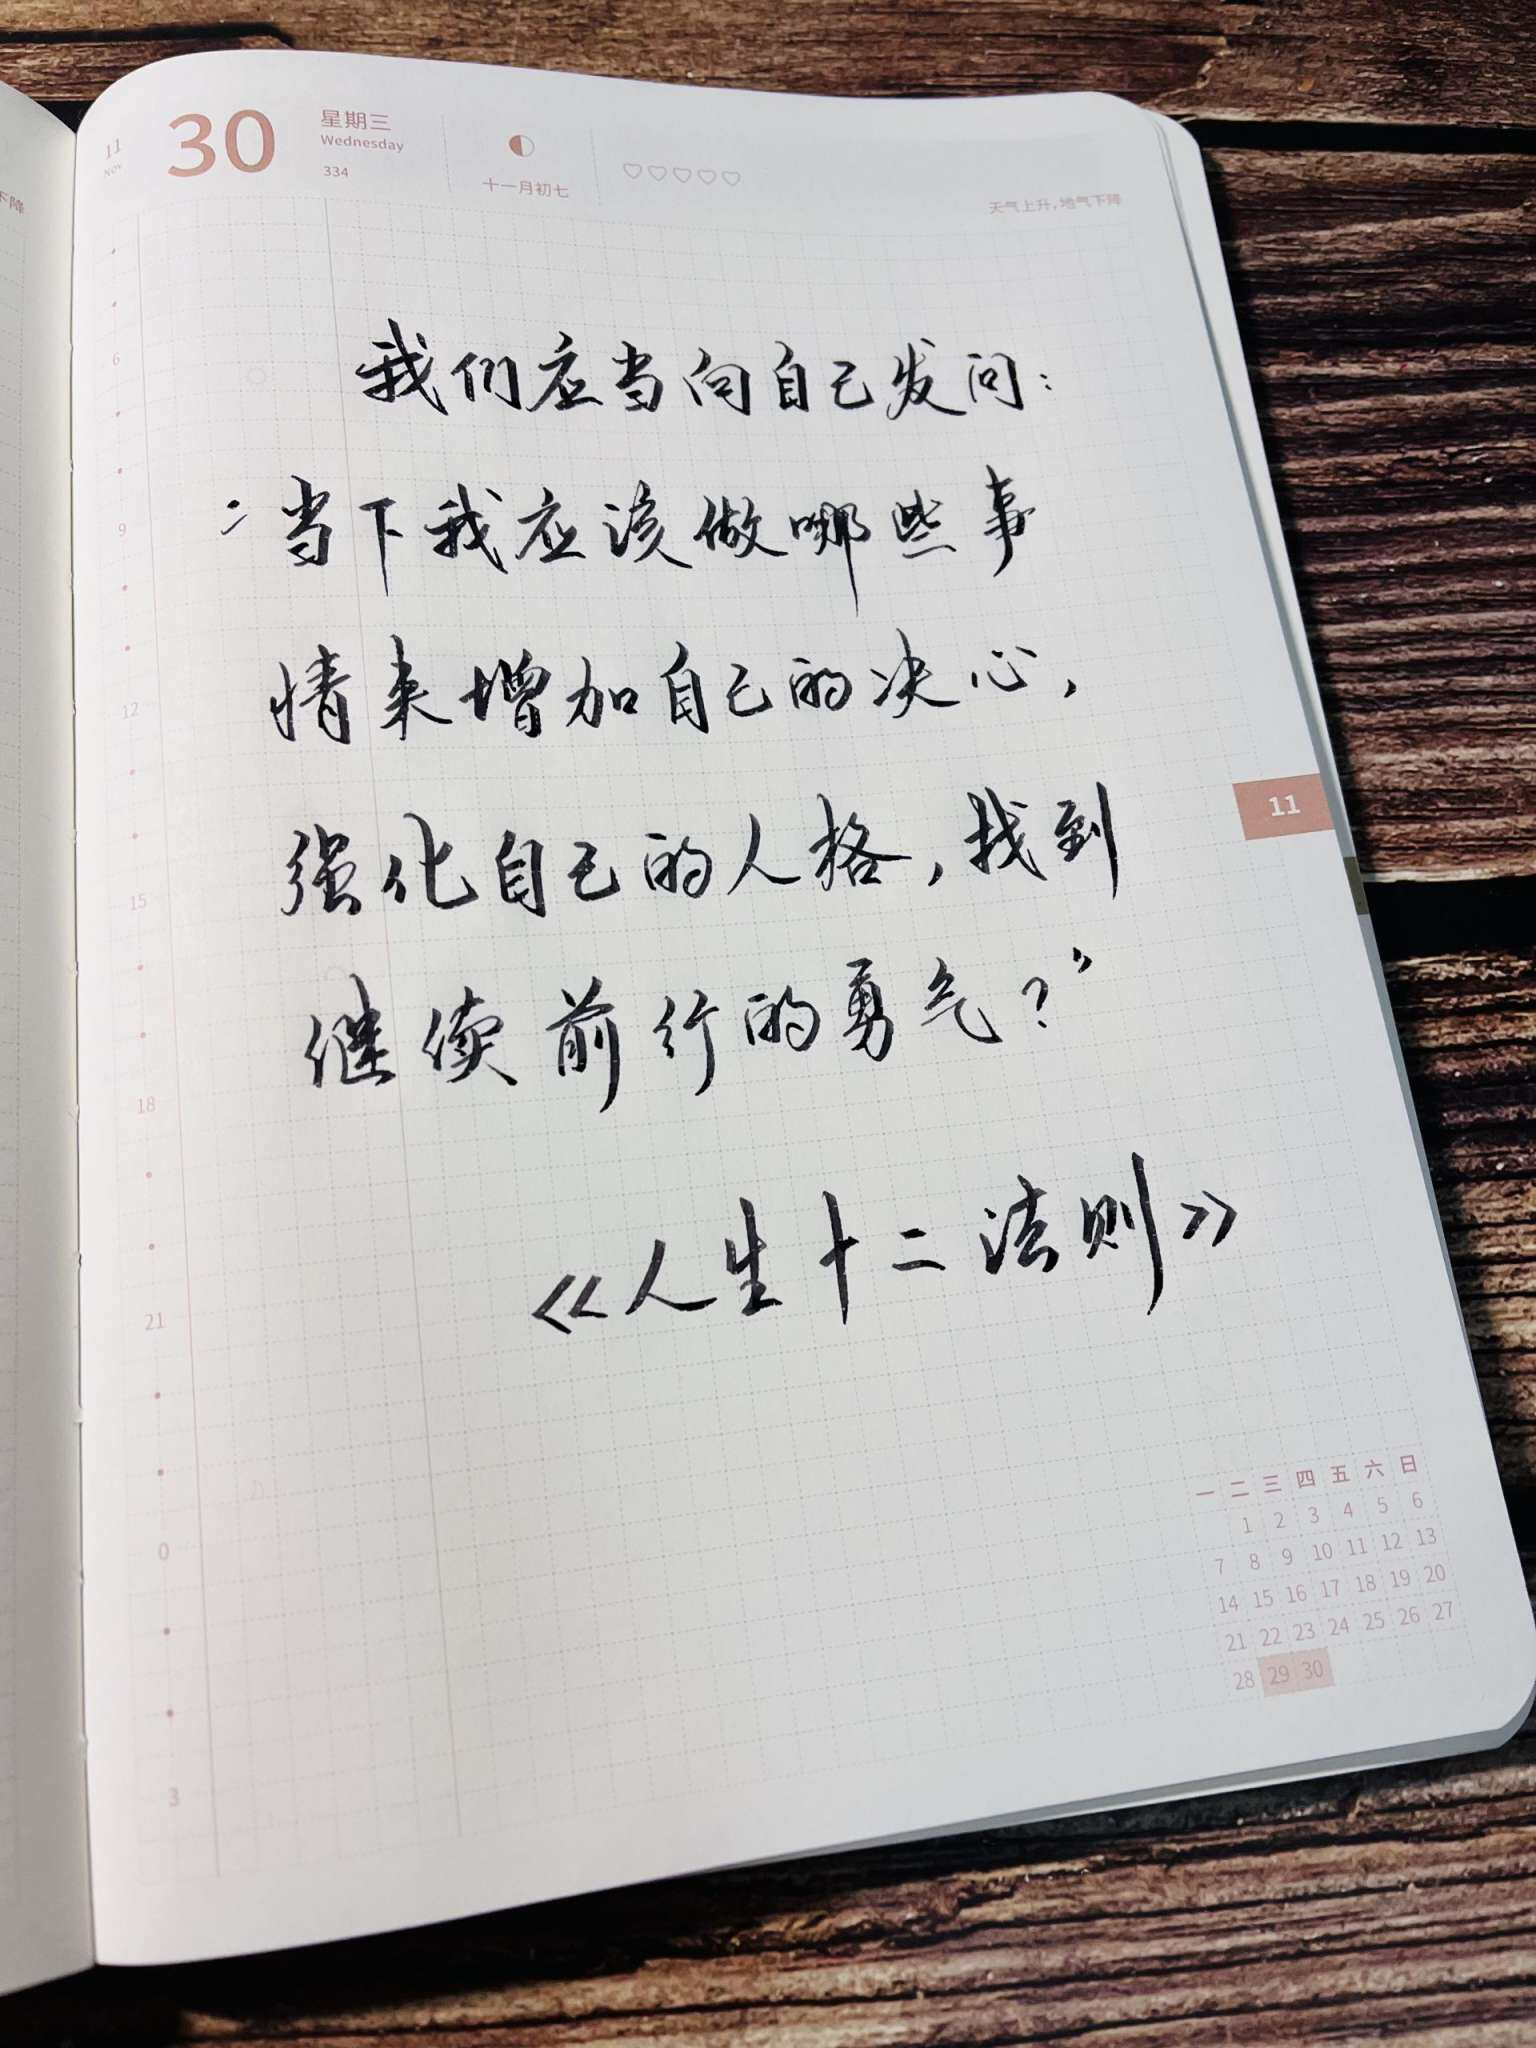 下降
11
NOV
30
星期三
Wednesday
334
十一月初七
天气上升,地气下降
6
9
12
15
18
21
0
3
我们应当向自己发问:
“当下我应该做哪些事
情来增加自己的决心,
强化自己的人格,找到
继续前行的勇气?”
《人生十二法则》
11
一 二 三 四 五 六 日
1 2 3 4 5 6
7 8 9 10 11 12 13
14 15 16 17 18 19 20
21 22 23 24 25 26 27
28 29 30